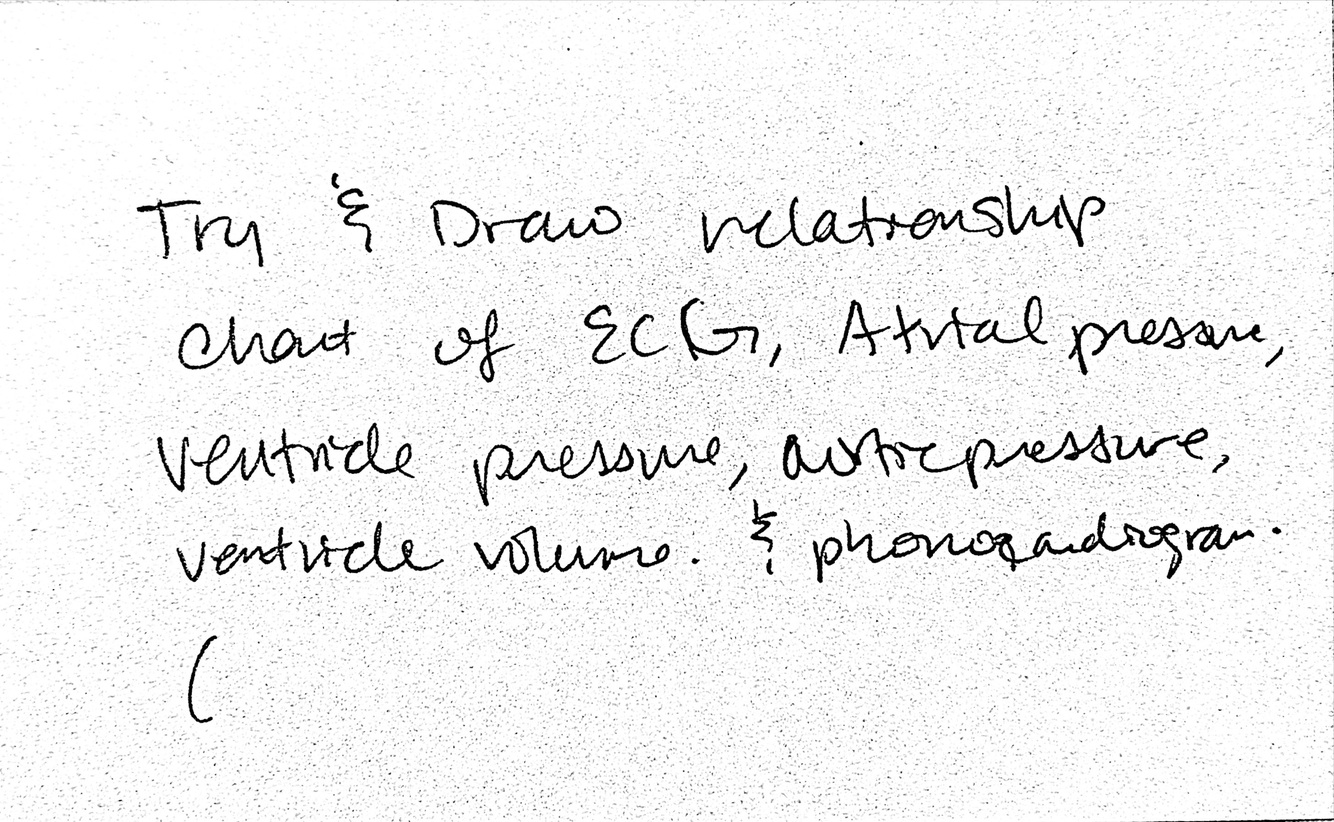 Try & Draw relationship
chart of ECG, Atrial pressure,
ventricle pressure, aortic pressure,
ventricle volume. & phonocardiogram.
(